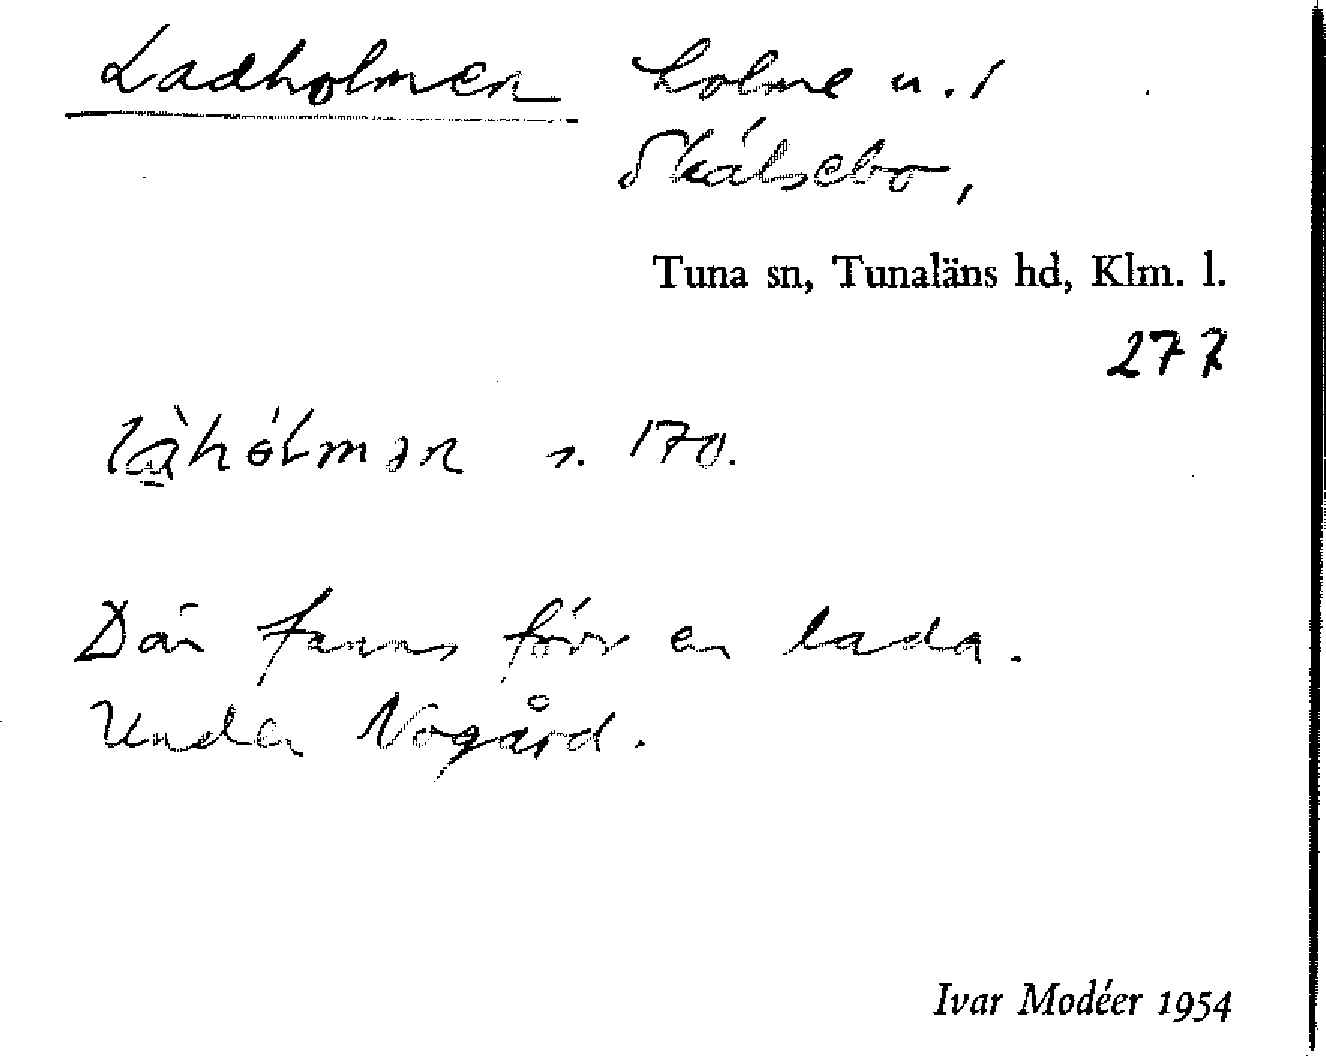 Ladholmen holme u. f
Skälsebo,
Tuna sn, Tunaläns hd, Klm. l.
277
s. 170.
Där fanns förr en lada.
Under Nogård.
Ivar Modéer 1954